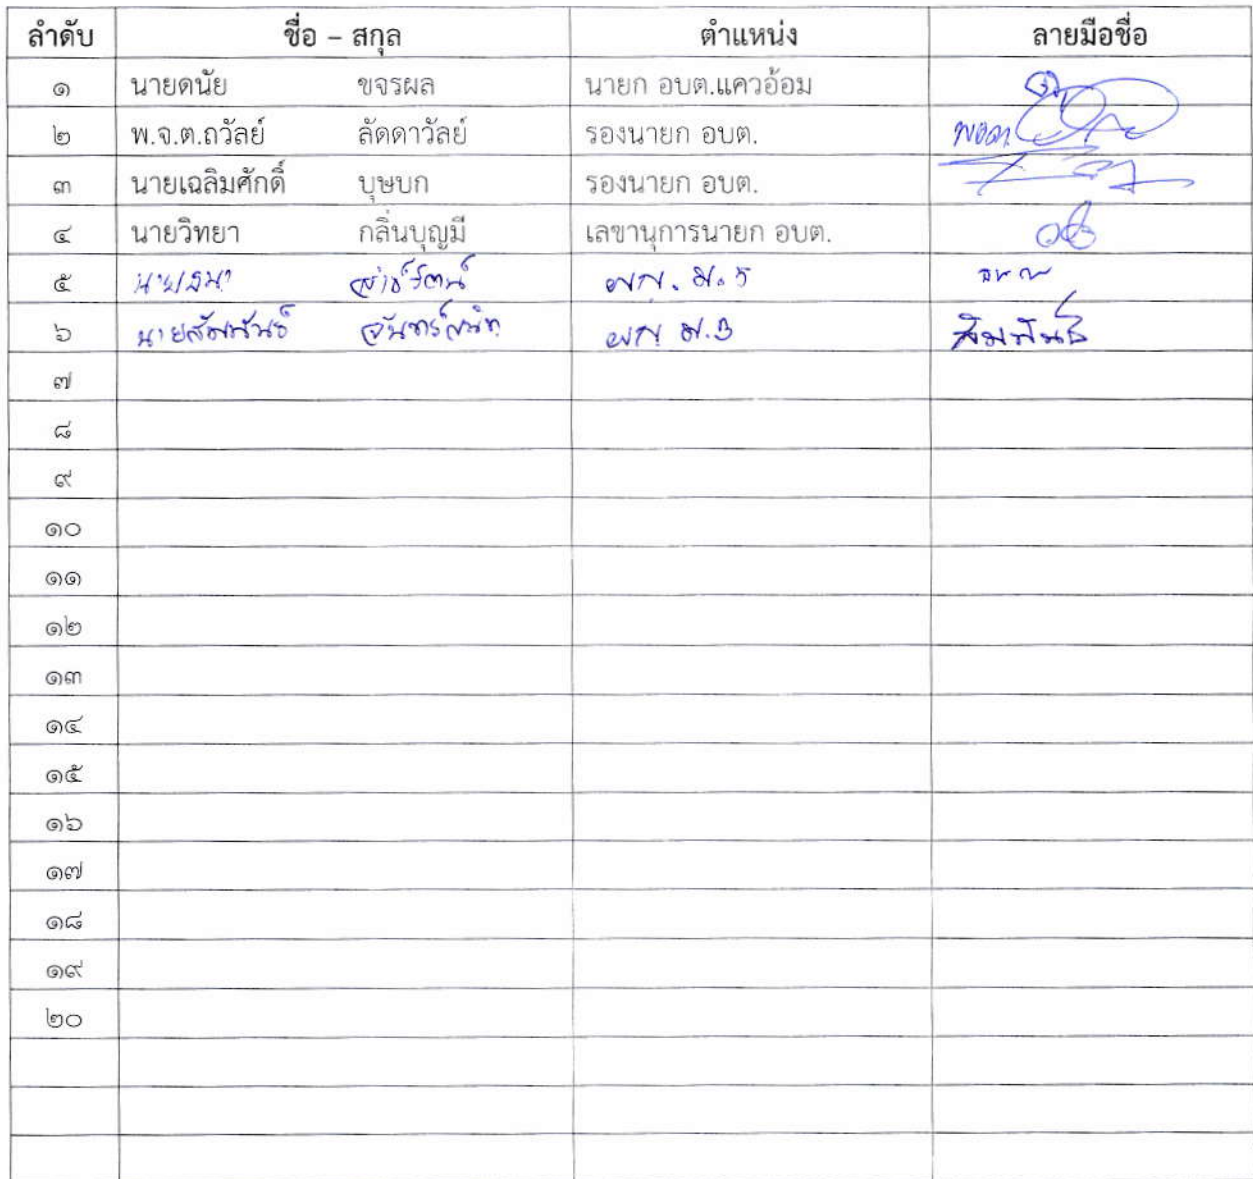 ลำดับ ชื่อ – สกุล ตำแหน่ง ลายมือชื่อ
๑ นายดนัย ขจรผล นายก อบต.แควอ้อม
๒ พ.จ.ต.ถวัลย์ ลัดดาวัลย์ รองนายก อบต.
๓ นายเฉลิมศักดิ์ บุษบก รองนายก อบต.
๔ นายวิทยา กลิ่นบุญมี เลขานุการนายก อบต.
๕ ม. 5
๖ นายสัมพันธ์ ม.3 สัมพันธ์
๗
๘
๙
๑๐
๑๑
๑๒
๑๓
๑๔
๑๕
๑๖
๑๗
๑๘
๑๙
๒๐